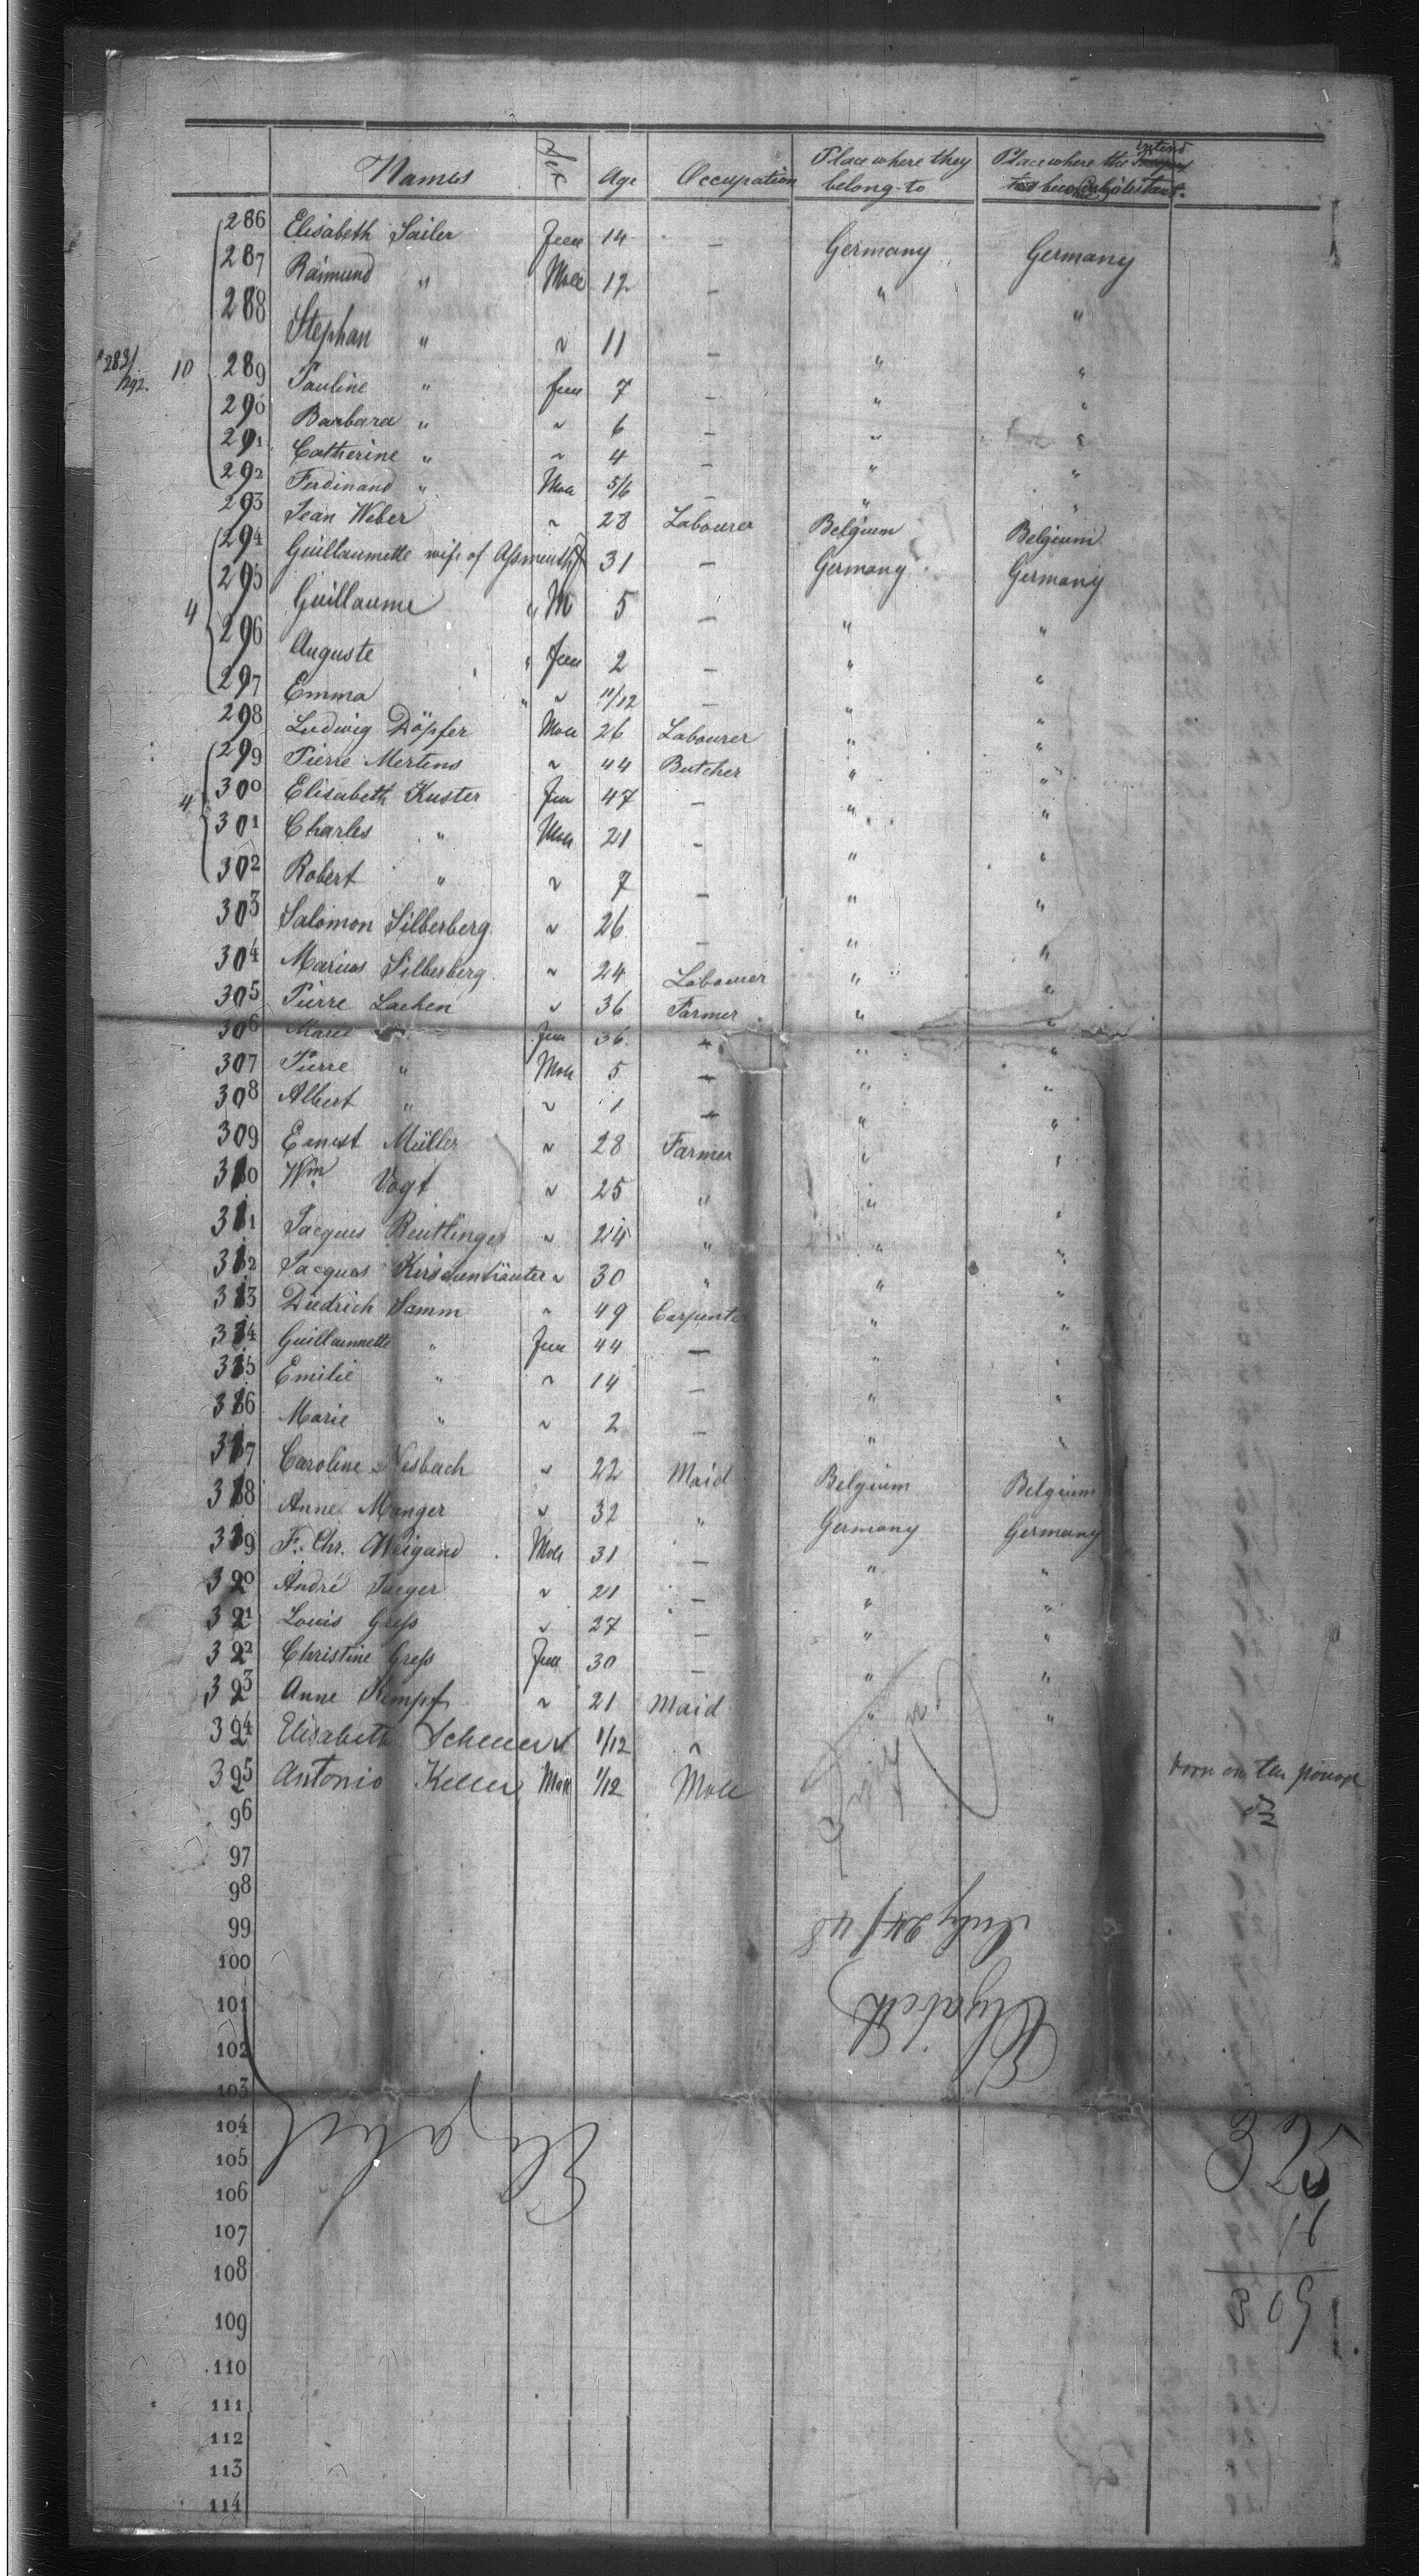 Names Sex Age Occupation Place where they belong to Place where they intend to become inhabitants.
286 Elisabeth Sailer Fem 14 — Germany Germany
287 Raimund " Male 12 — " "
288 Stephan " " 11 — " "
283/292. 10 289 Pauline " fem 7 — " "
290 Barbara " " 6 — " "
291 Catherine " " 4 — " "
292 Ferdinand " Male 5/6 — " "
293 Jean Weber " 28 Labourer Belgium Belgium
294 Guillaumette wife of 31 — Germany Germany
4 295 Guillaume " M 5 — " "
296 Auguste " Fem 2 — " "
297 Emma " " 11/12 — " "
298 Ludwig Döpfer Male 26 Labourer " "
299 Pierre Mertens " 44 Butcher " "
4 300 Elisabeth Kuster Fem 47 — " "
301 Charles " Male 21 — " "
302 Robert " " 7 — " "
303 Salomon Silberberg " 26 — " "
304 Marius Silberberg " 24 Labourer " "
305 Pierre Lachen " 36 Farmer " "
306 Marie " Fem 36 " " "
307 Pierre " Male 5 — " "
308 Albert " " 1 — " "
309 Ernest Müller " 28 Farmer " "
310 Wm Vogt " 25 " " "
311 Jacques Reutlinger " 24 " " "
312 Jacques " 30 " " "
313 Diedrich Samm " 49 Carpenter " "
314 Guillaumette " Fem 44 — " "
315 Emilie " " 14 — " "
316 Marie " " 2 — " "
317 Caroline Nesbach " 22 Maid Belgium Belgium
318 Anne Manger " 32 " Germany Germany
319 F. Chr. Weigand Male 31 — " "
320 André Jaeger " 21 — " "
321 Louis Gress " 27 — " "
322 Christine Gress Fem 30 — " "
323 Anne Kempf " 21 Maid " "
324 Elisabeth Scheuer 1/12 "
325 Antonio Keller Male 1/12 Male born on the
96
97
98
99
July 24/48
100
Elizabeth
101
102
103
104
Elizabeth
105
106
107
108
109
110
111
112
113
114